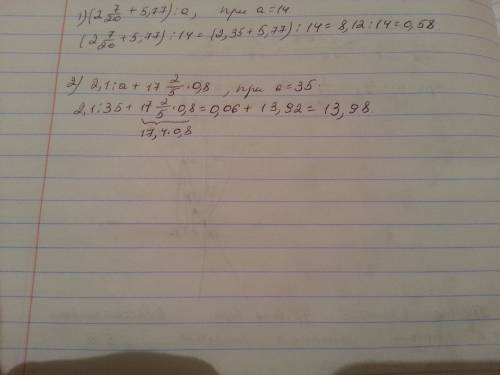 1) (2 7/20 + 5,77) : a, при a = 14
(2 7/20 + 5,77) : 14 = (2,35 + 5,77) : 14 = 8,12 : 14 = 0,58.
2) 2,1 : a + 17 2/5 · 0,8, при a = 35.
2,1 : 35 + 17 2/5 · 0,8 = 0,06 + 13,92 = 13,98.
17,4 · 0,8